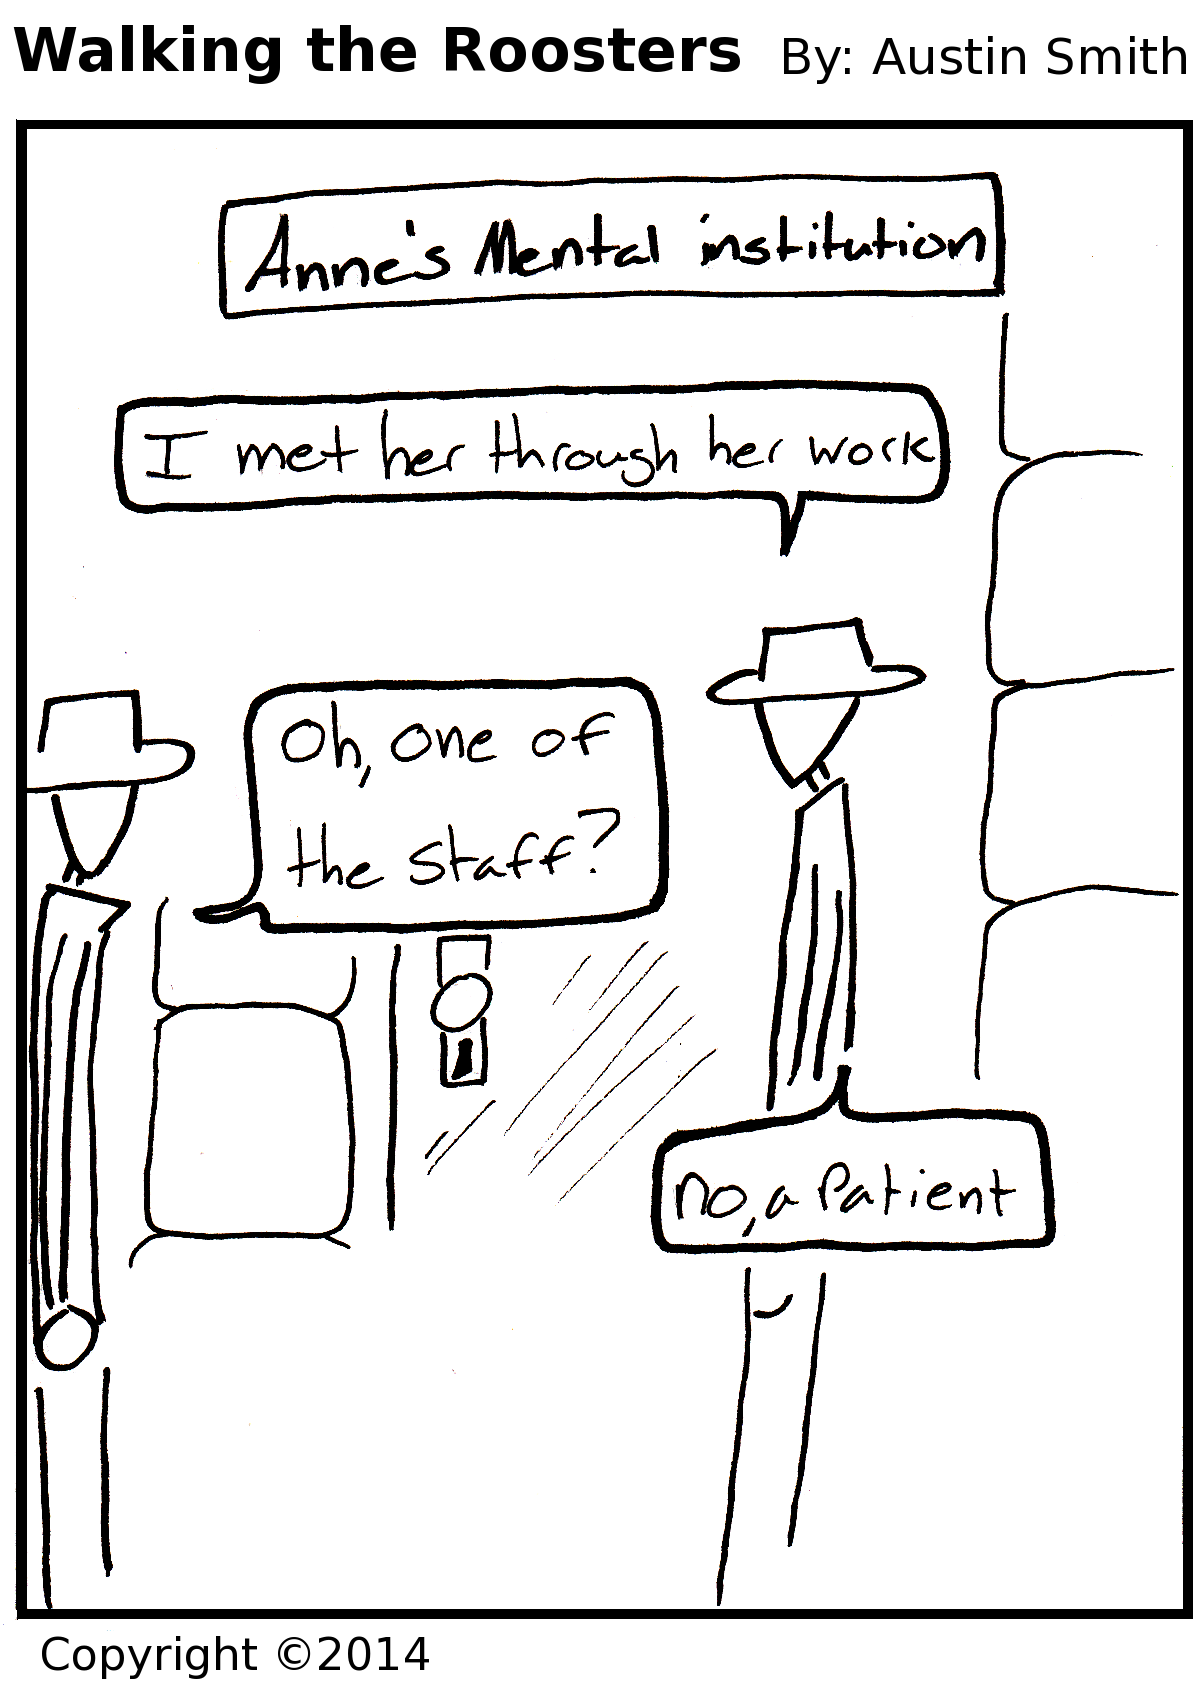 Walking the Roosters By: Austin Smith
Anne's Mental institution
I met her through her work
Oh, one of
the staff?
no, a Patient
Copyright ©2014